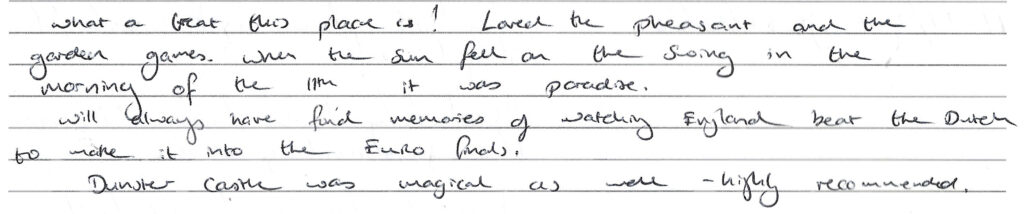 what a treat this place is! Loved the pheasant and the
garden games. When the sun fell on the swing in the
morning of the 11th it was paradise.
Will always have fond memories of watching England beat the Dutch
to make it into the Euro finals.
Dunster Castle was magical as well - highly recommended.